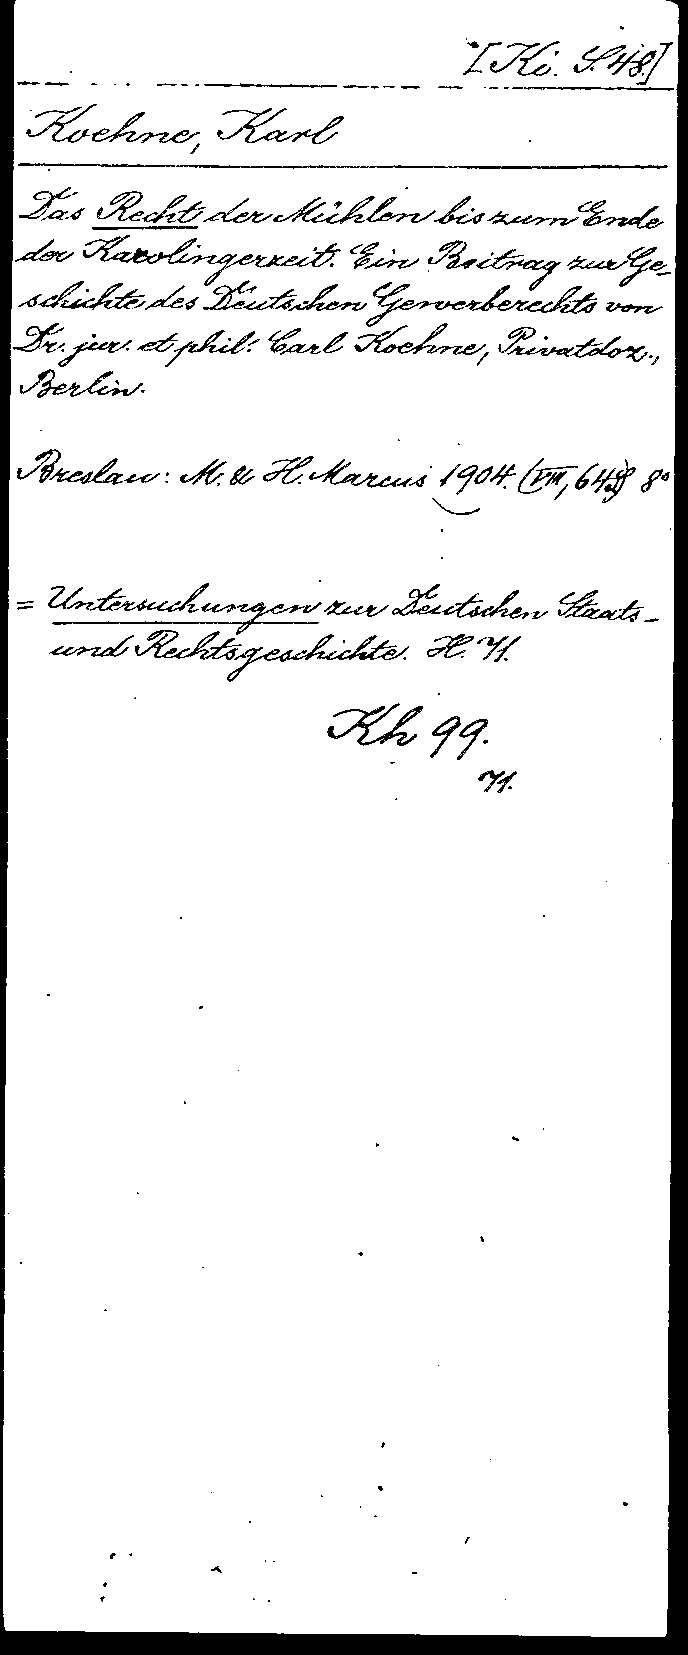 [Ki. S. 48]
Koehne, Karl
Das Recht der Mühlen bis zum Ende
der Karolingerzeit. Ein Beitrag zur Ge-
schichte des Deutschen Gewerberechts von
Dr. jur. et phil. Carl Koehne, Privatdoz.,
Berlin.
Breslau: M. & H. Marcus 1904. (VIII, 64 S) 8°
= Untersuchungen zur Deutschen Staats-
und Rechtsgeschichte. H. 71.
Kh 99.
71.